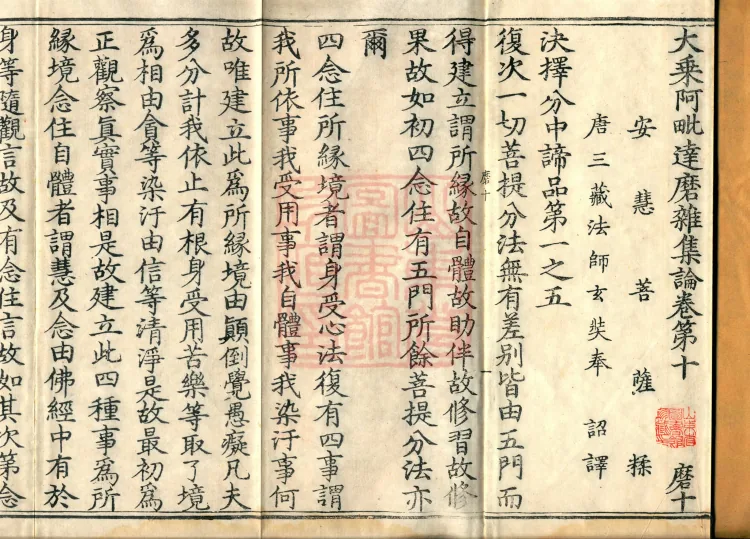 大乘阿毗達磨雜集論卷第十 磨十
安慧菩薩糅
唐三藏法師玄奘奉 詔譯
決擇分中諦品第一之五
復次一切菩提分法無有差別皆由五門而
磨十
得建立謂所緣故自體故助伴故修習故修
果故如初四念住有五門所餘菩提分法亦
爾
四念住所緣境者謂身受心法復有四事謂
我所依事我受用事我自體事我染汙事何
故唯建立此爲所緣境由顚倒覺愚癡凡夫
多分計我依止有根身受用苦樂等取了境
爲相由貪等染汙由信等清淨是故最初爲
正觀察眞實事相是故建立此四種事爲所
緣境念住自體者謂慧及念由佛經中有於
身等隨觀言故及有念住言故如其次第念